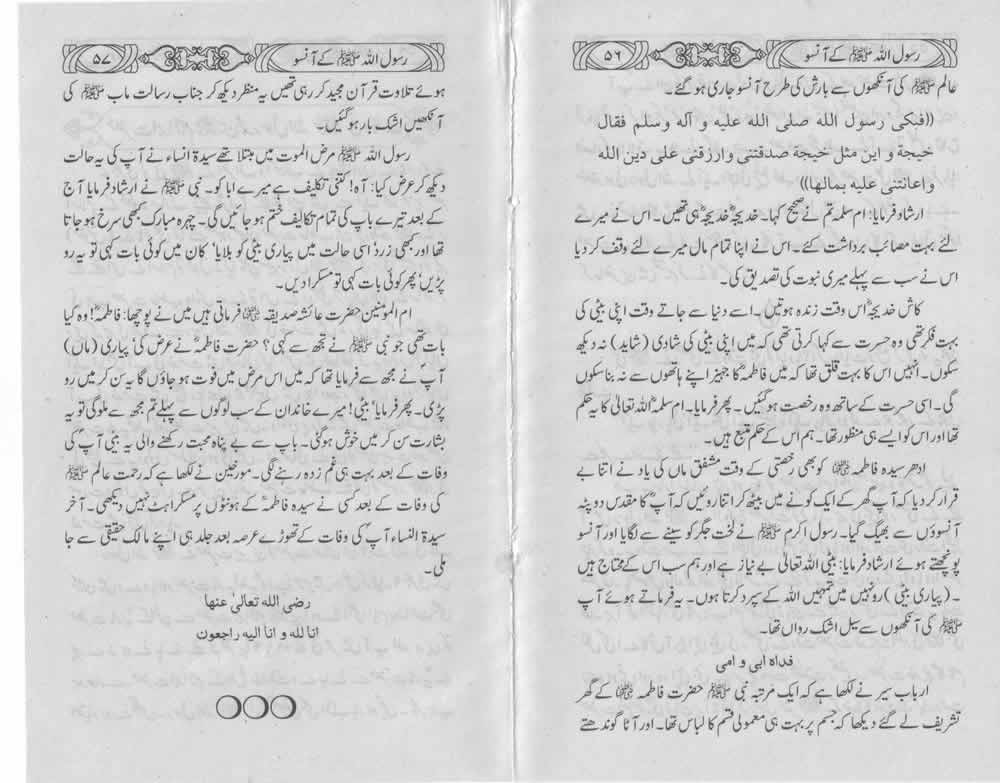 رسول اللہ ﷺ کے آنسو
۵۶
عالم ﷺ کی آنکھوں سے بارش کی طرح آنسو جاری ہو گئے۔
((فبکی رسول الله صلی الله علیه و آله وسلم فقال
خیجة و این مثل خیجة صدقتنی وارزقنی علی دین الله
واعانتنی علیه بمالها))
ارشاد فرمایا: ام سلمہ تم نے صحیح کہا۔ خدیجہؓ خدیجہؓ ہی تھیں۔ اس نے میرے
لئے بہت مصائب برداشت کئے۔ اس نے اپنا تمام مال میرے لئے وقف کر دیا
اس نے سب سے پہلے میری نبوت کی تصدیق کی۔
کاش خدیجہؓ اس وقت زندہ ہوتیں۔ اسے دنیا سے جاتے وقت اپنی بیٹی کی
بہت فکر تھی وہ حسرت سے کہا کرتی تھی کہ میں اپنی بیٹی کی شادی (شاید) نہ دیکھ
سکوں۔ انہیں اس کا بہت قلق تھا کہ میں فاطمہؓ کا جہیز اپنے ہاتھوں سے نہ بنا سکوں
گی۔ اسی حسرت کے ساتھ وہ رخصت ہو گئیں۔ پھر فرمایا۔ ام سلمہؓ اللہ تعالیٰ کا یہ حکم
تھا اور اس کو ایسے ہی منظور تھا۔ ہم اس کے حکم متبع ہیں۔
ادھر سیدہ فاطمہ ؓ کو بھی رخصتی کے وقت مشفق ماں کی یاد نے اتنا بے
قرار کر دیا کہ آپ گھر کے ایک کونے میں بیٹھ کر اتنا روئیں کہ آپؓ کا مقدس دوپٹہ
آنسوؤں سے بھیگ گیا۔ رسول اکرم ﷺ نے لخت جگر کو سینے سے لگایا اور آنسو
پونچھتے ہوئے ارشاد فرمایا: بیٹی اللہ تعالیٰ بے نیاز ہے اور ہم سب اس کے محتاج ہیں
۔ (پیاری بیٹی) رو نہیں میں تمہیں اللہ کے سپرد کرتا ہوں۔ یہ فرماتے ہوئے آپ
ﷺ کی آنکھوں سے سیل اشک رواں تھا۔
فداہ ابی و امی
ارباب سیر نے لکھا ہے کہ ایک مرتبہ نبی ﷺ حضرت فاطمہ ؓ کے گھر
تشریف لے گئے دیکھا کہ جسم پر بہت ہی معمولی قسم کا لباس تھا۔ اور آٹا گوندھتے
رسول اللہ ﷺ کے آنسو
۵۷
ہوئے تلاوت قرآن مجید کر رہی تھیں یہ منظر دیکھ کر جناب رسالت ماب ﷺ کی
آنکھیں اشک بار ہو گئیں۔
رسول اللہ ﷺ مرض الموت میں مبتلا تھے سیدۃ انساء نے آپ کی یہ حالت
دیکھ کر عرض کیا: آہ! کتنی تکلیف ہے میرے ابا کو۔ نبی ﷺ نے ارشاد فرمایا آج
کے بعد تیرے باپ کی تمام تکالیف ختم ہو جائیں گی۔ چہرہ مبارک کبھی سرخ ہو جاتا
تھا اور کبھی زرد' اسی حالت میں پیاری بیٹی کو بلایا' کان میں کوئی بات کہی تو یہ رو
پڑیں' پھر کوئی بات کہی تو مسکرا دیں۔
ام المؤمنین حضرت عائشہ صدیقہ ؓ فرماتی ہیں میں نے پوچھا: فاطمہؓ! وہ کیا
بات تھی جو نبی ﷺ نے تجھ سے کہی؟ حضرت فاطمہؓ نے عرض کی' پیاری (ماں)
آپؐ نے مجھ سے فرمایا تھا کہ میں اس مرض میں فوت ہو جاؤں گا یہ سن کر میں رو
پڑی۔ پھر فرمایا' بیٹی! میرے خاندان کے سب لوگوں سے پہلے تم مجھ سے ملو گی تو یہ
بشارت سن کر میں خوش ہو گئی۔ باپ سے بے پناہ محبت رکھنے والی یہ بیٹی آپؐ کی
وفات کے بعد بہت ہی غم زدہ رہنے لگی۔ مورخین نے لکھا ہے کہ رحمت عالم ﷺ
کی وفات کے بعد کسی نے سیدہ فاطمہؓ کے ہونٹوں پر مسکراہٹ نہیں دیکھی۔ آخر
سیدۃ النساء آپؐ کی وفات کے تھوڑے عرصہ بعد جلد ہی اپنے مالک حقیقی سے جا
ملی۔
رضی الله تعالیٰ عنها
انا لله و انا الیه راجعون